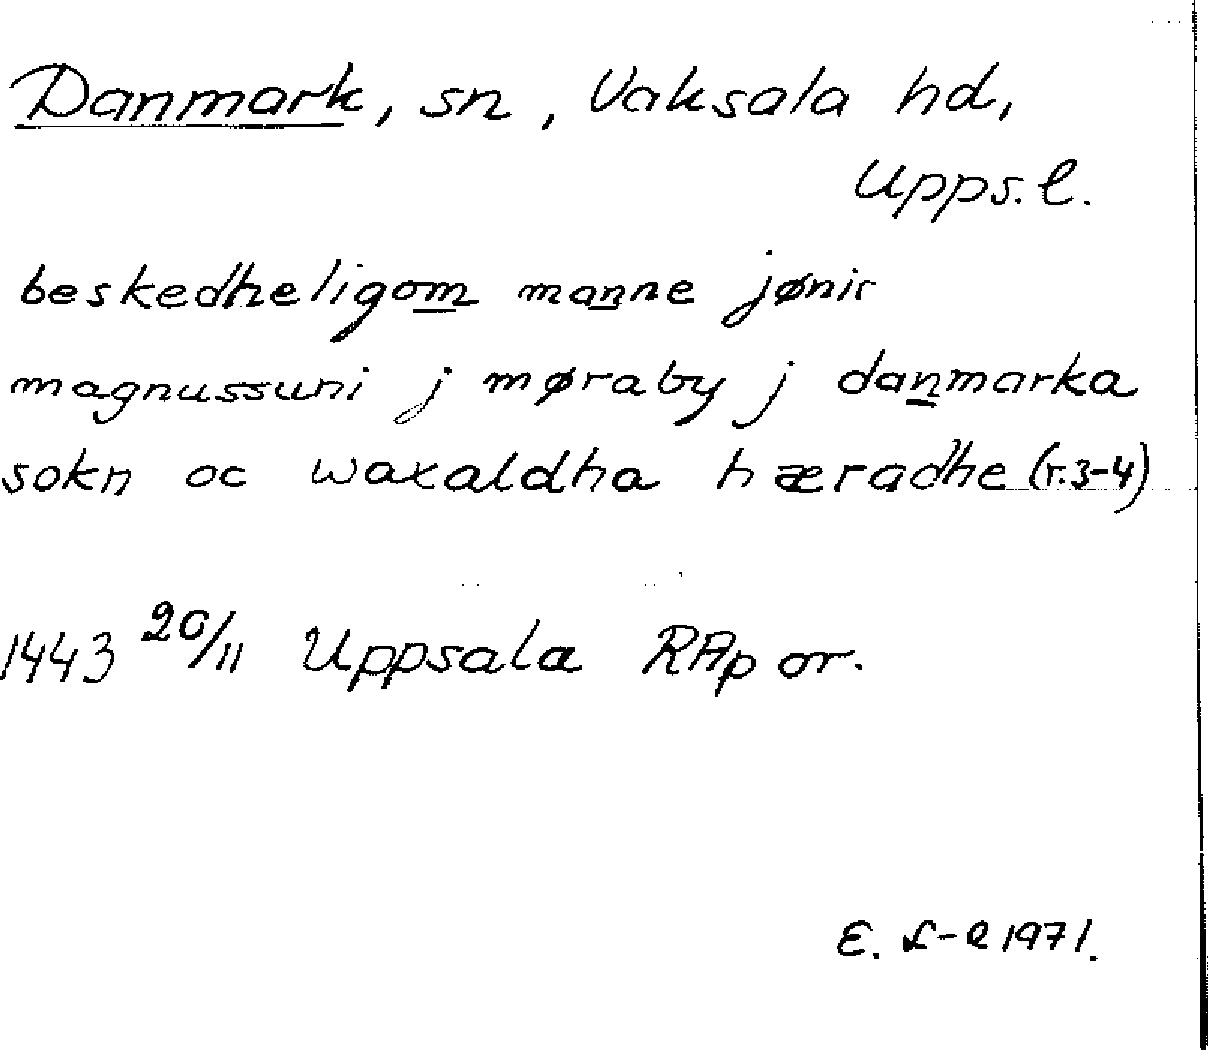 Danmark, sn, Vaksala hd,
Upps. l.
beskedheligom manne jønir
magnussuni j møraby j danmarka
sokn oc waxaldha hæradhe (r. 3-4)
1443 20/11 Uppsala RAp or.
E. L-e 1971.